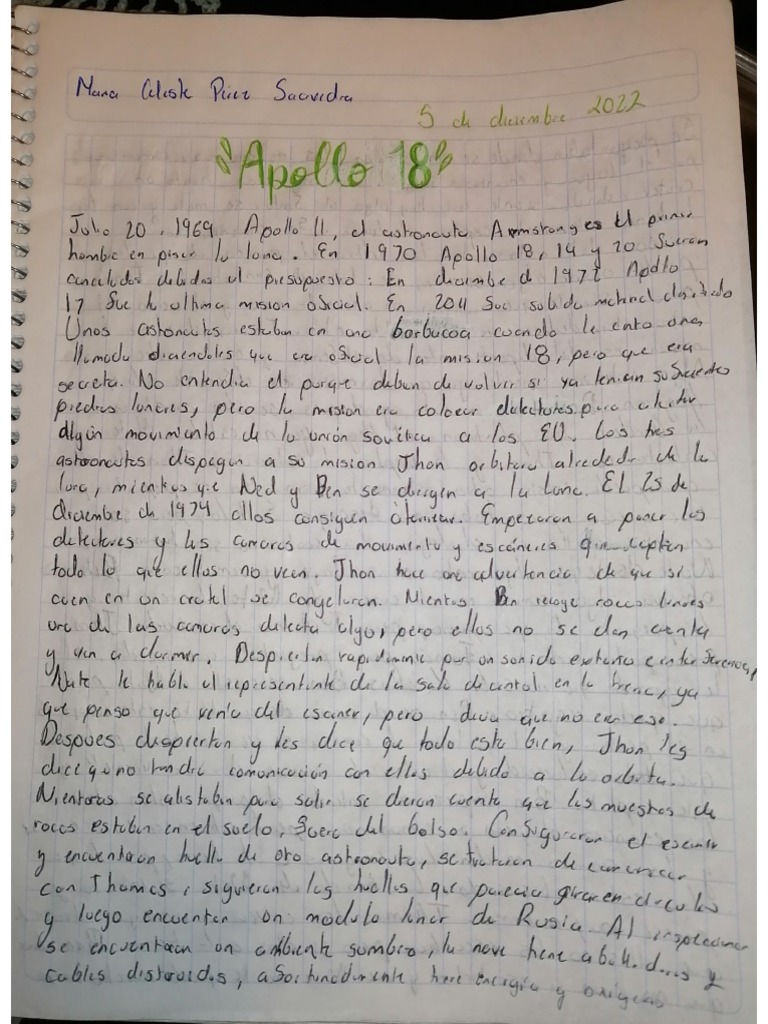 Maria Celeste Pérez Saavedra
5 de diciembre 2022
Apollo 18
Julio 20, 1969 Apollo 11, el astronauta Armstrong es el primer
hombre en pisar la luna. En 1970 Apollo 18, 19 y 20 fueron
cancelados debidas al presupuesto: En diciembre de 1972 Apollo
17 fue la ultima mision oficial. En 2011 fue subido material clasificado
Unos astronautas estaban en una barbucoa cuando le entro una
llamada diciendoles que era oficial la mision 18, pero que era
secreta. No entendia el porque deben de volver si ya tenian suficientes
piedras lunares, pero la mision era colocar detectores para alertar
algún movimiento de la unión soviética a los EU. Los tres
astronautas dispegan a su mision Jhon orbitara alrededor de la
luna, mientras que Ned y Ben se dirigen a la luna. El 25 de
diciembre de 1974 ellos consiguen aterrizar. Empezaron a poner los
detectores y las camaras de movimiento y escáneres que
todo lo que ellos no veen. Jhon hace una advertencia de que si
caen en un se congelaran. Mientras Ben recoge rocas lunares
una de las camaras detecta algo, pero ellos no se dan cuenta
y van a dormir. Despiertan rapidamente por un sonido externo e interferencias,
Nate le habla al representante de la sala de control en la ya
que penso que venia del escaner, pero decia que no era eso.
Despues despiertan y les dice que todo esta bien, Jhon les
dice que no tendra comunicación con ellos debido a la orbita.
Mientras se alistaban para salir se dieron cuenta que las muestras de
rocas estaban en el suelo, fuera del bolso. Configuraron el escaner
y encuentran huella de otro astronauta, se trataron de comunicar
con Thomas, siguieron las huellas que parecia giraren circulos
y luego encuentran un modulo lunar de Rusia. Al inspeccionar
se encuentran un ambiente sombrio, la nave tiene abolladuras y
cables distruidos, afortunadamente tiene energia y oxigeno